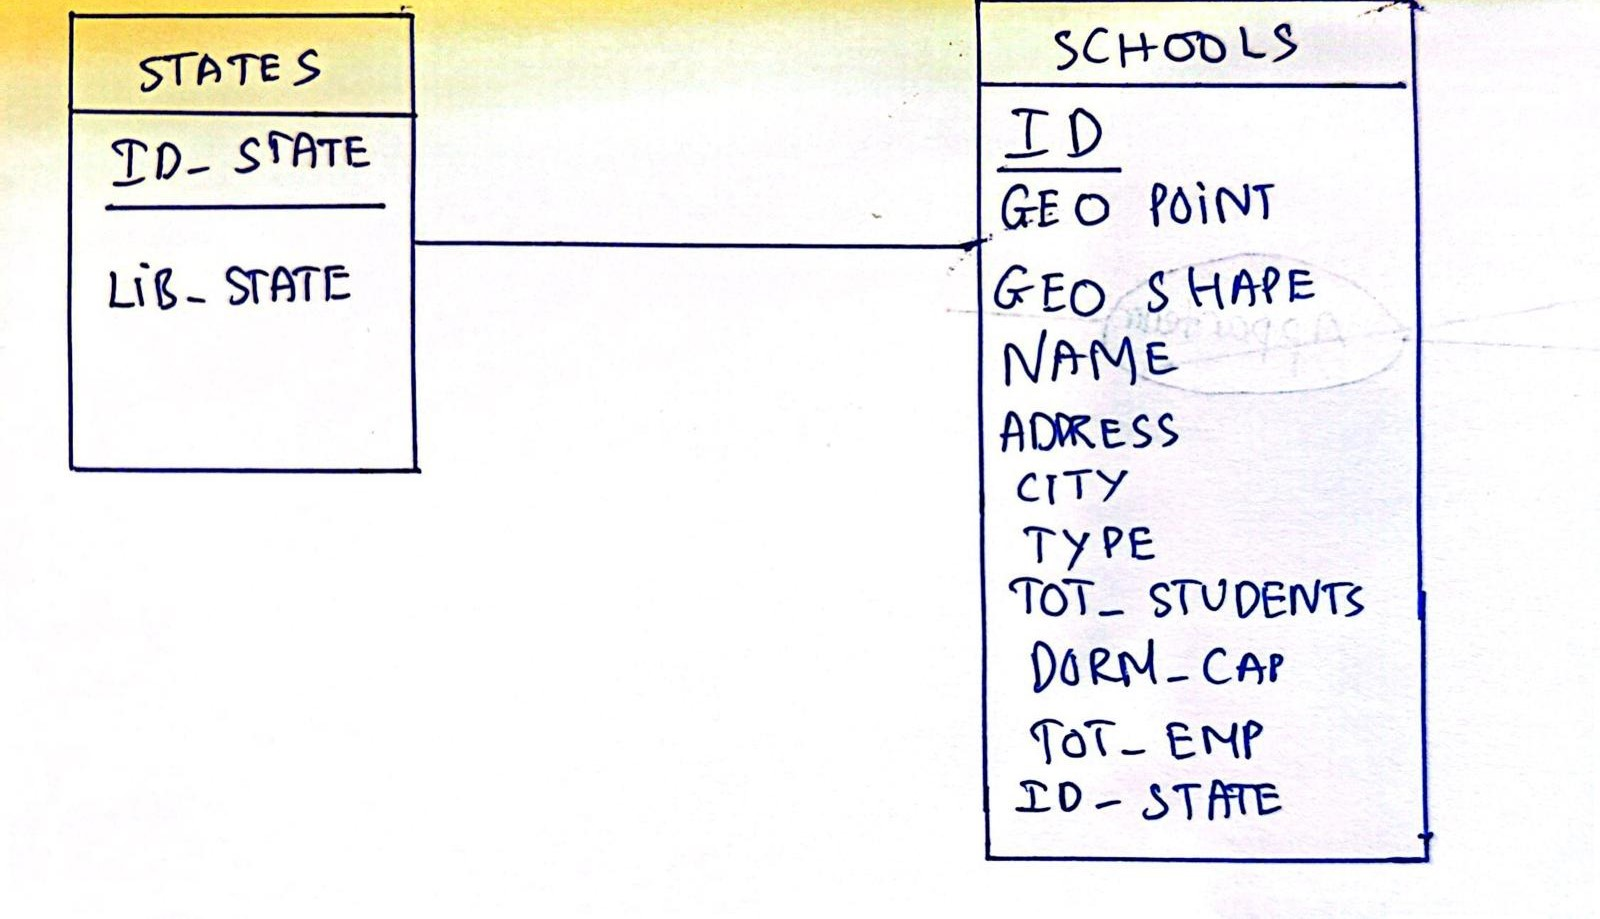 STATES
ID_STATE
LIB_STATE
SCHOOLS
ID
GEO POINT
GEO SHAPE
NAME
ADDRESS
CITY
TYPE
TOT_STUDENTS
DORM_CAP
TOT_EMP
ID_STATE